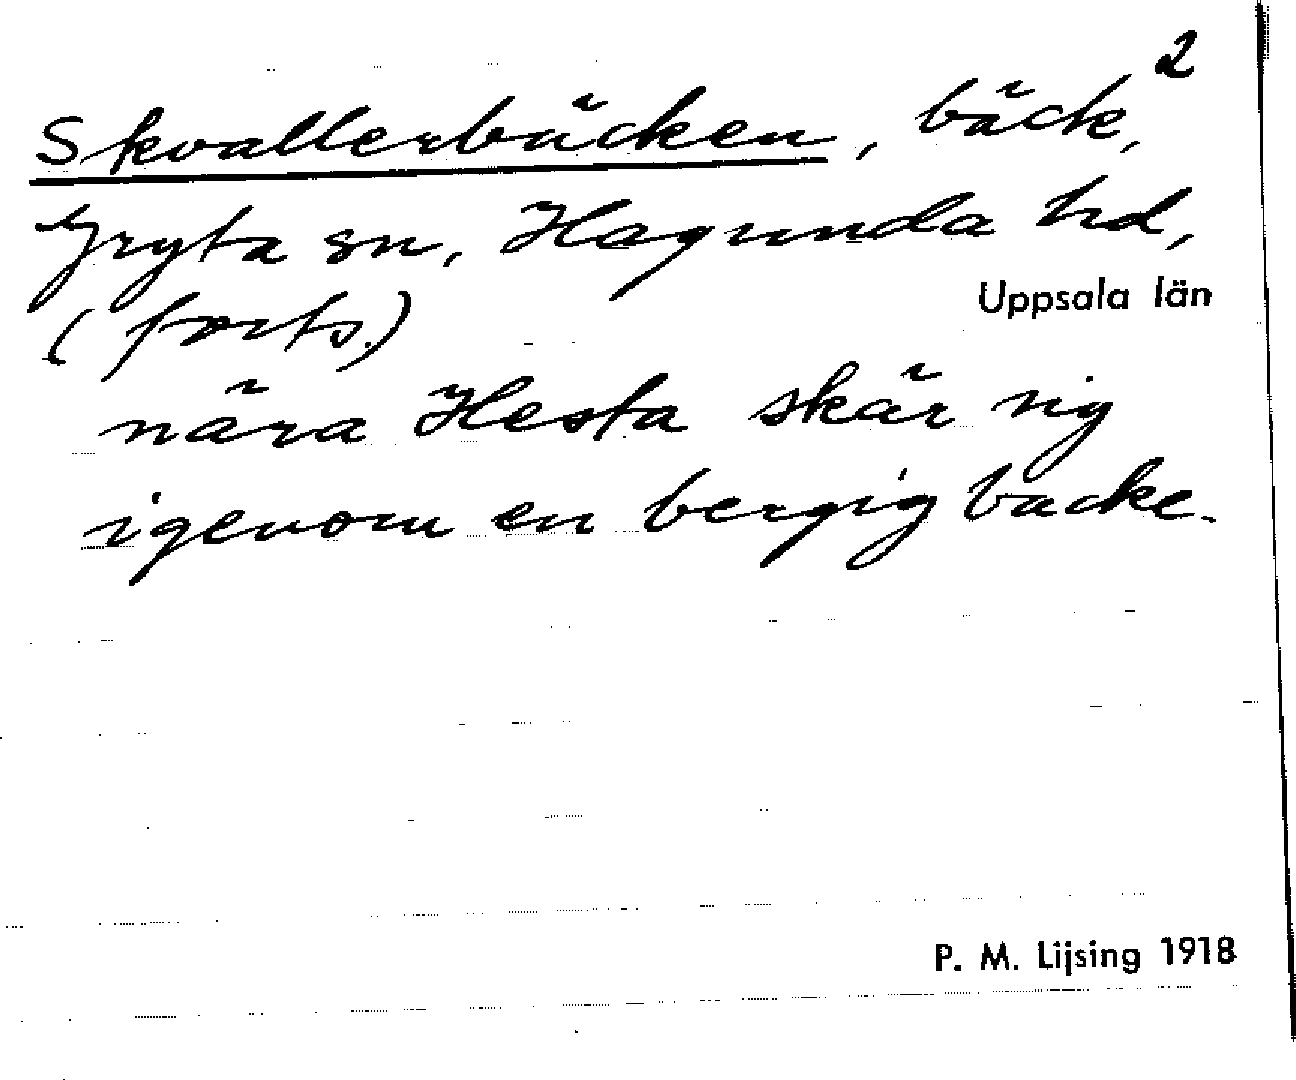 2
Skvallerbäcken, bäck,
Gryta sn, Hagunda hd,
Uppsala län
(forts.)
nära Hesta skär sig
igenom en bergig backe.
P. M. Lijsing 1918